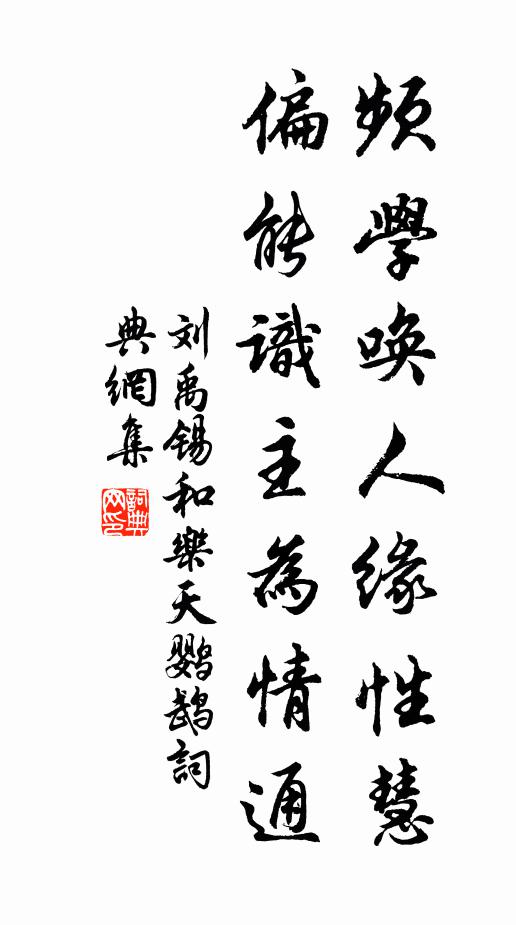 頻學喚人緣性慧
偏能識主為情通
刘禹锡和樂天鹦鵡詞
典網集
詞典
网印